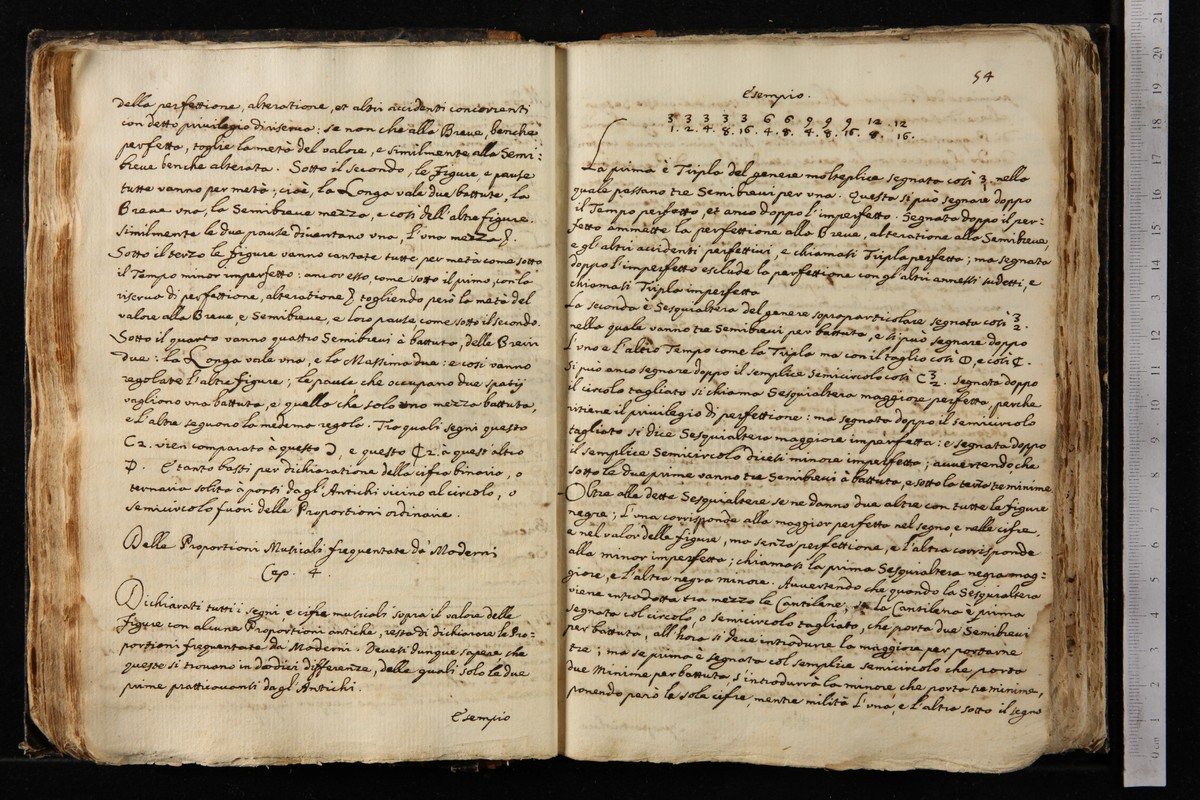 della perfettione, alteratione, et altri accidenti concorrenti
con detto privilegio di riserva: se non che alla Breve, benche
perfetta, toglie la metà del valore, e similmente alla Semi:
breve benche alterata. Sotto il secondo, le figure, e pause
tutte vanno per metà; cioè, la Longa vale due battute, la
Breve una, la Semibreve mezza, e così dell'altre figure.
Similmente le due pause diventano una, l'una mezza
Sotto il terzo le figure vanno cantate tutte per metà come sotto
il Tempo minor imperfetto: ancor esso, come sotto il primo, con la
riserva di perfettione, alteratione togliendo però la metà del
valore alla Breve, e Semibreve, e loro pause, come sotto il secondo.
Sotto il quarto vanno quattro Semibrevi à battuta, delle Brevi
due: la Longa vale una, e la Massima due: e così vanno
regolate l'altre figure; le pause che occupano due spatij
vagliono una battuta, e quella che solo uno mezza battuta,
e l'altre seguono la medema regola. Tra quali segni questo
C2. vien comparato à questo Ɔ, e questo ₵2. à quest'altro
. E tanto basti per dichiaratione della cifra binaria, o
ternaria solita à porsi dagl'Antichi vicino al circolo, o
semicircolo fuori delle Proportioni ordinarie.
Delle Proportioni Musicali frequentate da Moderni
Cap. 4.
Dichiarati tutti i segni e cifre musicali sopra il valore delle
figure con alcune Proportioni antiche, resta di dichiarare le Pro=
portioni frequentate da Moderni. Devesi dunque sapere che
queste si trovano in dodici differenze, delle quali solo le due
prime pratticavanti dagl'Antichi.
Esempio
54
Esempio.
3 3 3 3 3 6 6 9 9 9 12 12
1. 2. 4. 8. 16. 4. 8. 4. 8. 16. 8. 16.
La prima è Tripla del genere moltiplice segnata così 3. nella
quale passano tre Semibrevi per una. Questa si può segnare doppo
il Tempo perfetto, et anco doppo l'imperfetto. Segnata doppo il per=
fetto ammette la perfettione alla Breve, alteratione alla Semibreve,
e gl'altri accidenti perfettivi, e chiamasi Tripla perfetta; ma segnata
doppo l'imperfetto esclude la perfettione con gl'altri annessi sudetti, e
chiamasi Tripla imperfetta
La seconda è Sesquialtera del genere sopraparticolare segnata così 3/2.
nella quale vanno tre Semibrevi per battuta, e si può segnare doppo
l'uno e l'altro Tempo come la Tripla ma con il taglio così ⌽, e così ₵.
Si può anco segnare doppo il semplice Semicircolo così C 3/2. Segnata doppo
il circolo tagliato si chiama Sesquialtera maggiore perfetta, perche
ritiene il privilegio di perfettione: ma segnata doppo il semicircolo
tagliato si dice Sesquialtera maggiore imperfetta: e segnata doppo
il semplice Semicircolo dicesi minore imperfetta; avvertendo che
sotto le due prime vanno tre Semibrevi à battuta, e sotto la terza tre minime
Oltre alle dette Sesquialtere se ne danno due altre con tutte le figure
negre; l'una corrisponde alla maggior perfetta nel segno, e nelle cifre,
e nel valor delle figure, ma senza perfettione, e l'altra corrisponde
alla minor imperfetta; chiamasi la prima Sesquialtera negra mag=
giore, e l'altra negra minore. Avvertendo che quando la Sesquialtera
viene introdotta tra mezzo le Cantilene; se la Cantilena è prima
segnata col circolo, o semicircolo tagliato, che porta due Semibrevi
per battuta, all'hora si deve introdurre la maggiore per portarne
tre; ma se prima è segnata col semplice semicircolo che porta
due Minime per battuta s'introdurrà la minore che porta tre minime,
ponendo però le sole cifre, mentre milita l'una, e l'altra sotto il segno